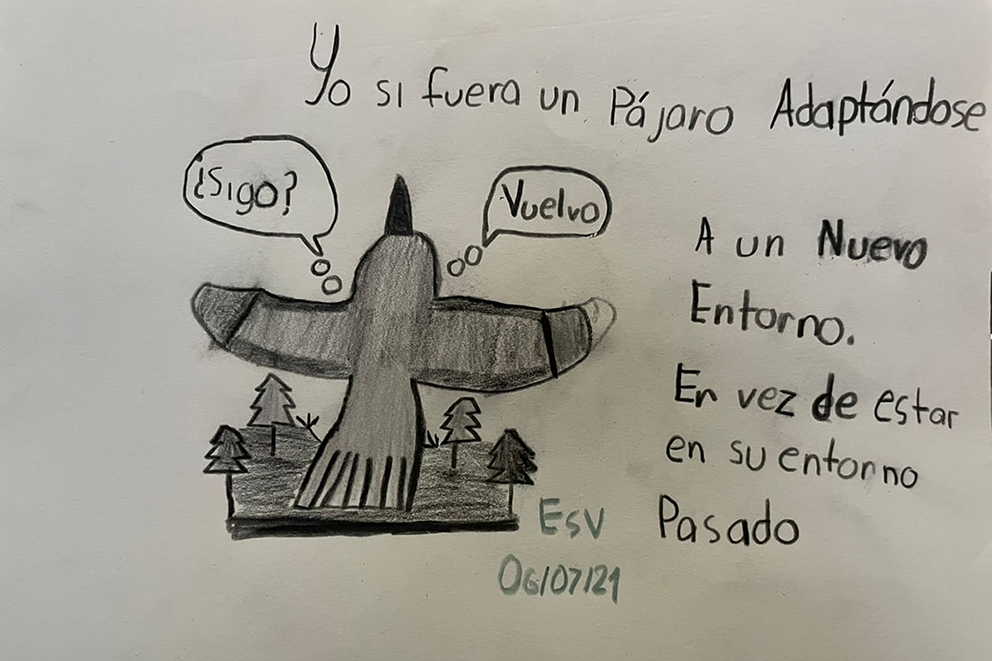 Yo si fuera un Pájaro Adaptándose
¿Sigo?
Vuelvo
A un Nuevo
Entorno.
En vez de estar
en su entorno
Pasado
Esv
06/07/21